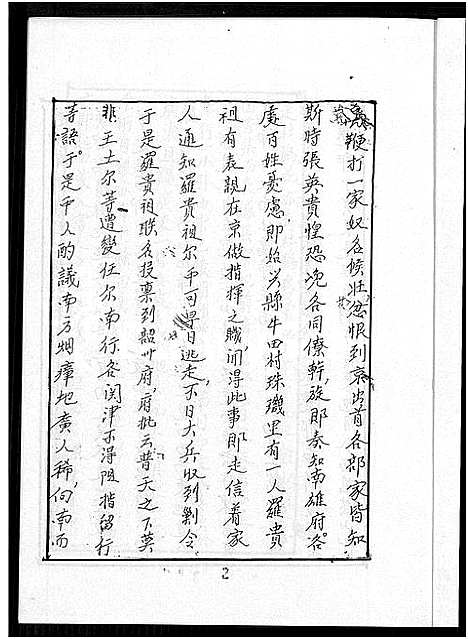 鞭打一家奴名候壮忿恨到京出首各部家皆知
斯時張英貴惶恐况各同僚幹放即奏知南雄府各
處百姓憂慮即始兴縣牛田村珠璣里有一人羅貴
祖有表親在京做指揮之職闻得此事即走信着家
人通知羅貴祖尔千可早日逃走不日大兵收到剿令
于是羅貴祖联名投禀到韶州府府批云普天之下莫
非王土尔等遭變任尔南行各関津不得阻揩留行
等語于是千人酌議南方烟瘴地廣人稀向南而
2